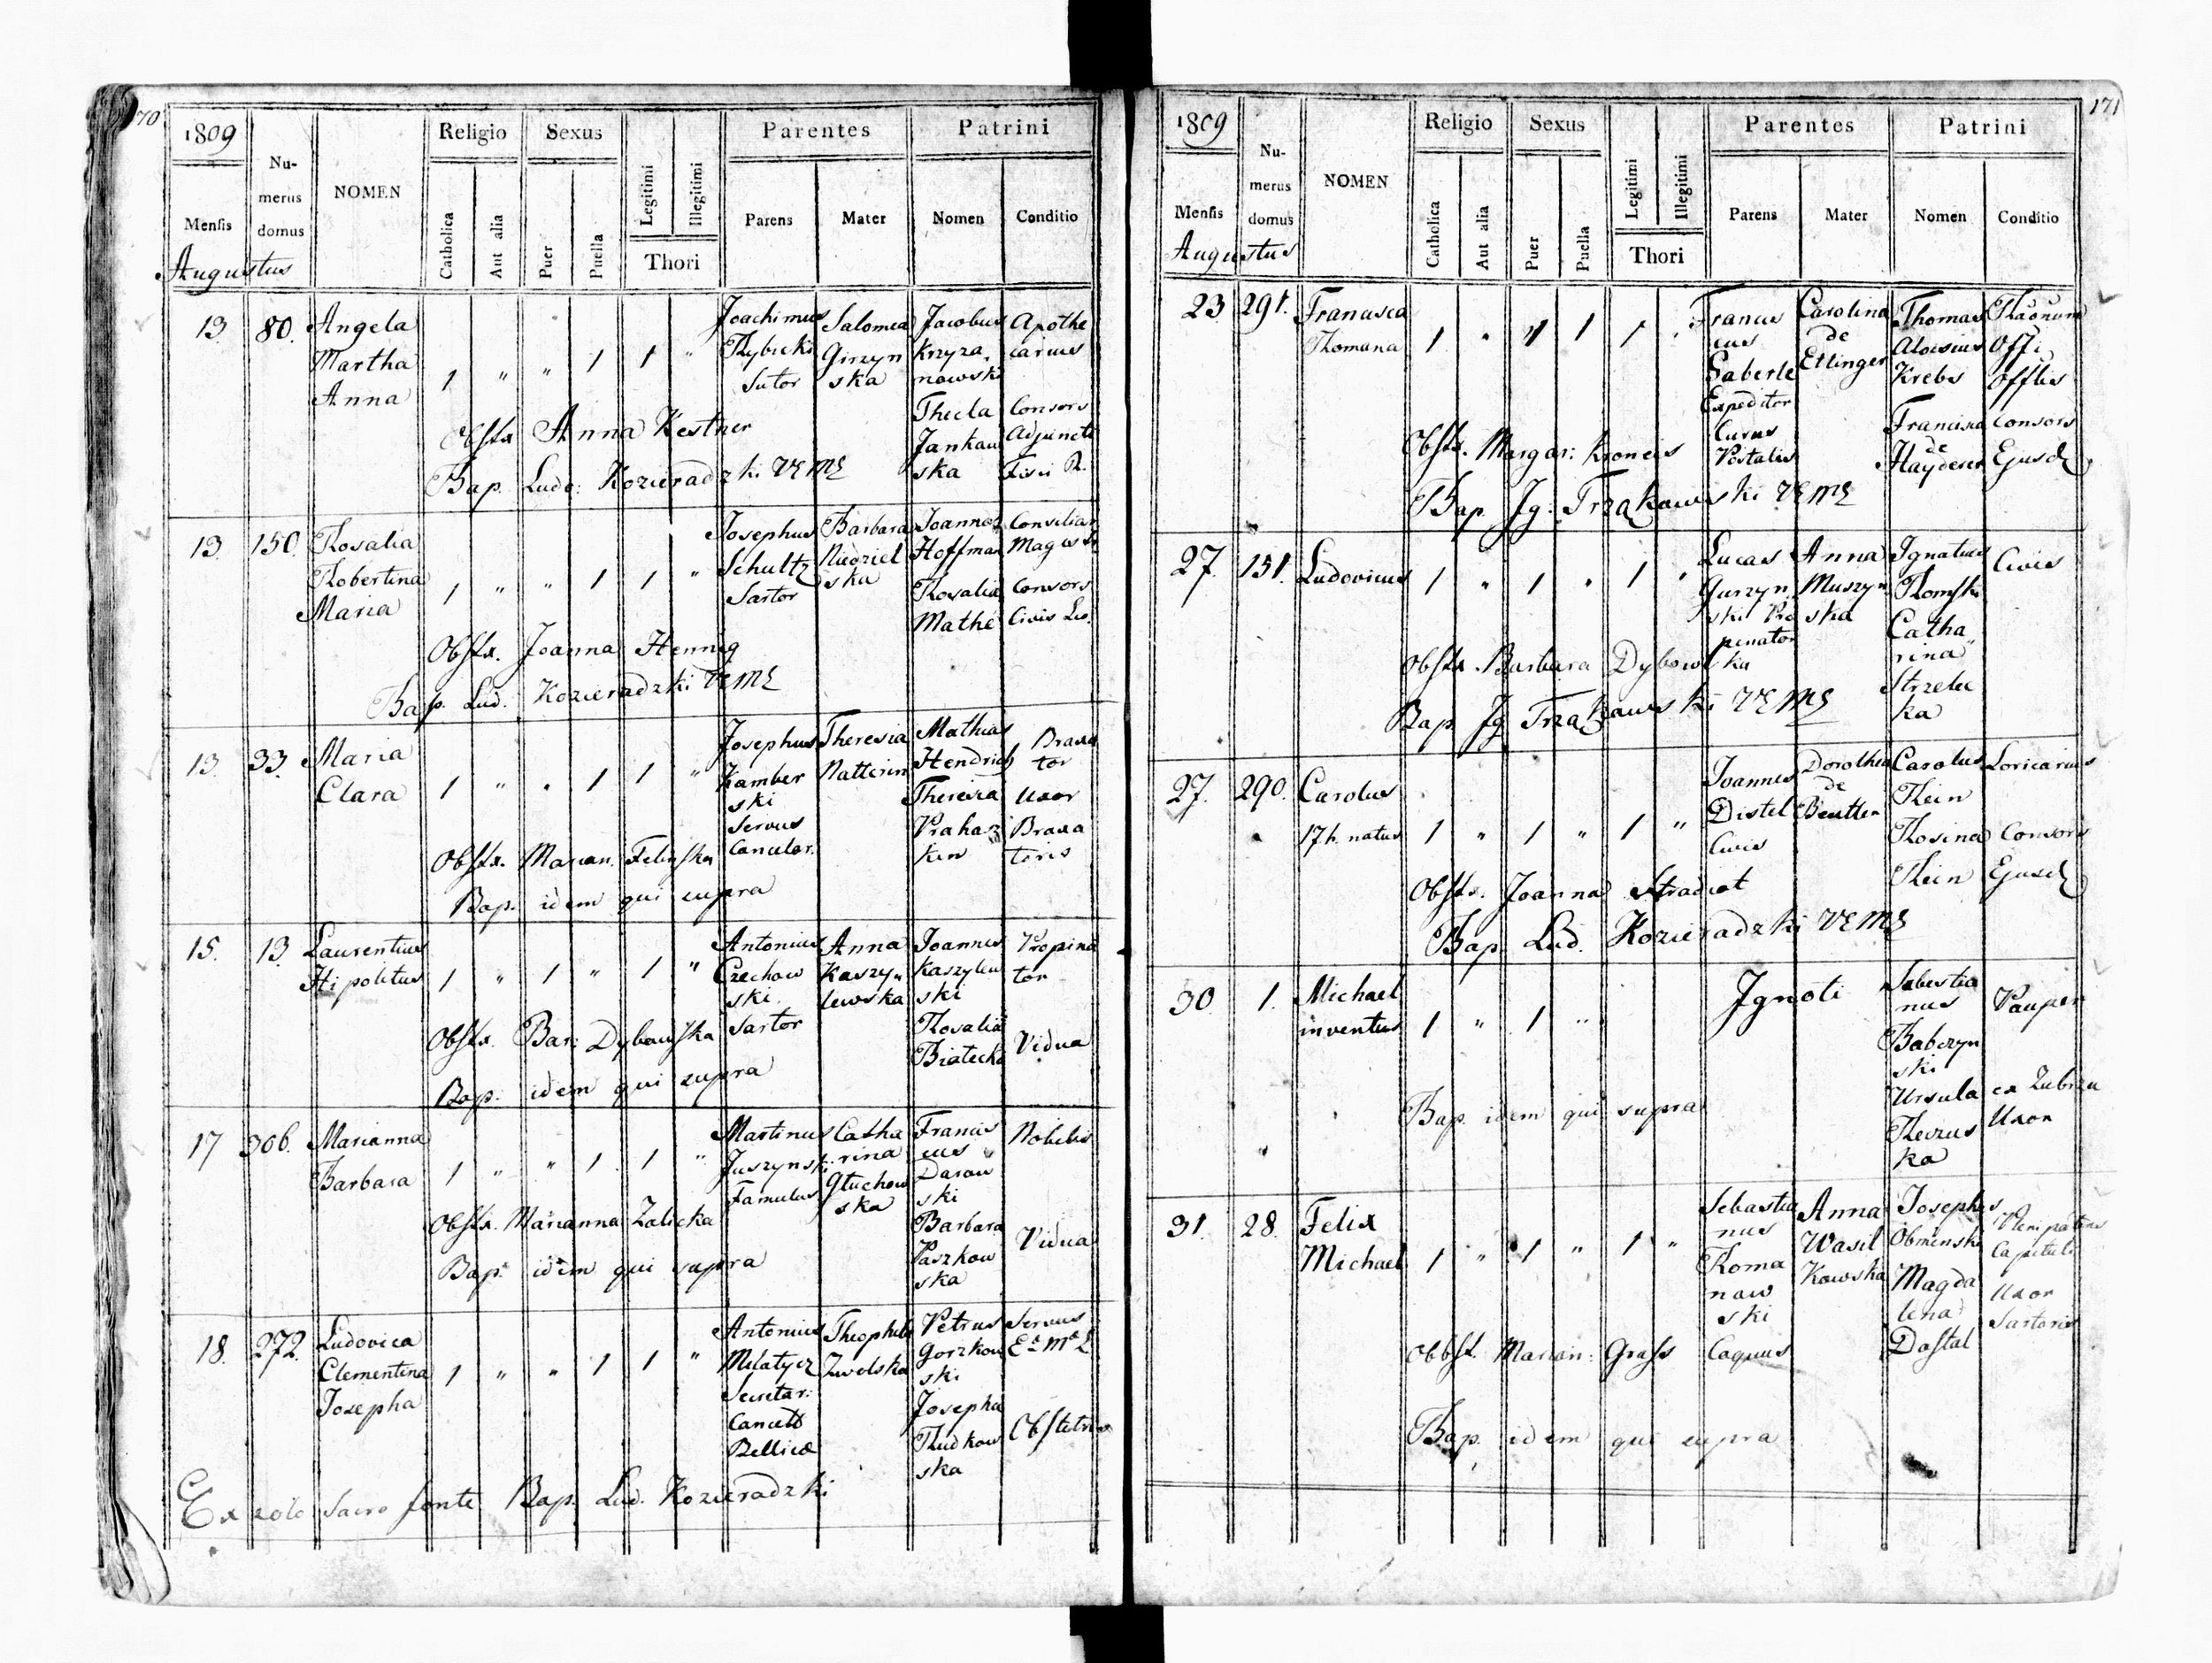 170
1809
Numerus domus
NOMEN
Religio
Sexus
Legitimi
Illegitimi
Parentes
Patrini
Mensis
Catholica
Aut alia
Puer
Puella
Thori
Parens
Mater
Nomen
Conditio
Augustus
13 80. Angela Martha Anna
1 " " 1 1 "
Joachimus Rybicki Sutor
Salomea Girzynska
Jacobus Krzyzanowski
Apothecarius
Thecla Jankowska
Consors Adjuncti Fisci R.
Obstx Anna Kestner
Bap. Ludo: Kozieradzki VEME
13. 150. Rosalia Robertina Maria
1 " " 1 1 "
Josephus Schultz Sartor
Barbara Niedzielska
Joannes Hoffman
Consiliar Magistr
Rosalia Mathe
Consors Civis Leo.
Obstx. Joanna Hennig
Bap. Lud. Kozieradzki VEME
13. 33. Maria Clara
1 " " 1 1 "
Josephus Kamberski Servus Cancelar.
Theresia Natterin
Mathias Hendrich
Braxator
Theresia
Uxor Braxatoris
Obstx. Marian. Felinska
Bap. idem qui supra
15. 13. Laurentius Hipolitus
1 " 1 " 1 "
Antonius Czechowski. Sartor
Anna Kaszylewska
Joannes Kaszylewski
Propinator
Rosalia Bialecka
Vidua
Obstx. Bar: Dybowska
Bap. idem qui supra
17 306. Marianna Barbara
1 " " 1 1 "
Martinus Juszynski Famulus
Catharina Gluchowska
Franciscus Darowski
Nobilis
Barbara Paszkowska
Vidua
Obstx. Marianna Zalicka
Bap. idem qui supra
18. 272. Ludovica Clementina Josepha
1 " " 1 1 "
Antonius Milatycz Secretar: Cancell Bellicæ
Theophila Zwolska
Petrus Gorzkowski
Servus
Josepha Rudkowska
Obstetrix
Ex solo Sacro fonte Bap. Lud. Kozieradzki
171
1809
Numerus domus
NOMEN
Religio
Sexus
Legitimi
Illegitimi
Parentes
Patrini
Mensis
Catholica
Aut alia
Puer
Puella
Thori
Parens
Mater
Nomen
Conditio
Augustus
23 291. Francisca Romana
1 " " 1 1 "
Franciscus Saberle Expeditor Currus Postalis
Carolina de Ettinger
Thomas Aloisius Krebs
Francisca de Hayderer
Consors Ejusd
Obstx. Margar: Kroneis
Bap. Jg: Trzakowski VEME
27. 151. Ludovicus
1 " 1 " 1 "
Lucas Gurzynski Propinator
Anna Muszynska
Ignatius Romski
Civis
Catharina Strzelecka
Obstx Barbara Dybowska
Bap Jg Trzakowski VEME
27. 290. Carolus
17 h. natus
1 " 1 " 1 "
Joannes Distel Civis
Dorothea de Beutler
Carolus Klein
Loricarius
Rosina Klein
Consors Ejusd
Obstx. Joanna Stradiot
Bap. Lud. Kozieradzki VEME
30 1. Michael inventus
1 " 1 "
Ignoti
Sebastianus Babczynski
Pauper
Ursula
ex Zubrza Uxor
Bap. idem qui supra
31. 28. Felix Michael
1 " 1 " 1 "
Sebastianus Romanowski Coquus
Anna Wasilkowska
Josephus Obminski
Plenipotens Capituli
Magdalena Dostal
Uxor Sartoris
Obbst. Marian: Grass
Bap. idem qui supra